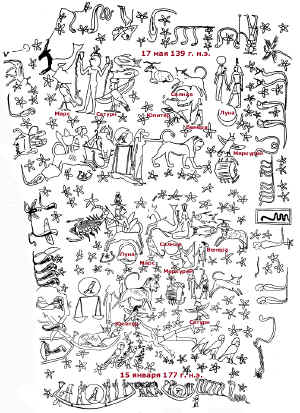 17 мая 139 г. н.э.
Солнце
Марс Сатурн Юпитер Луна
Венера
Меркурий
Солнце
Луна Венера
Марс
Меркурий
Юпитер Сатурн
15 января 177 г. н.э.